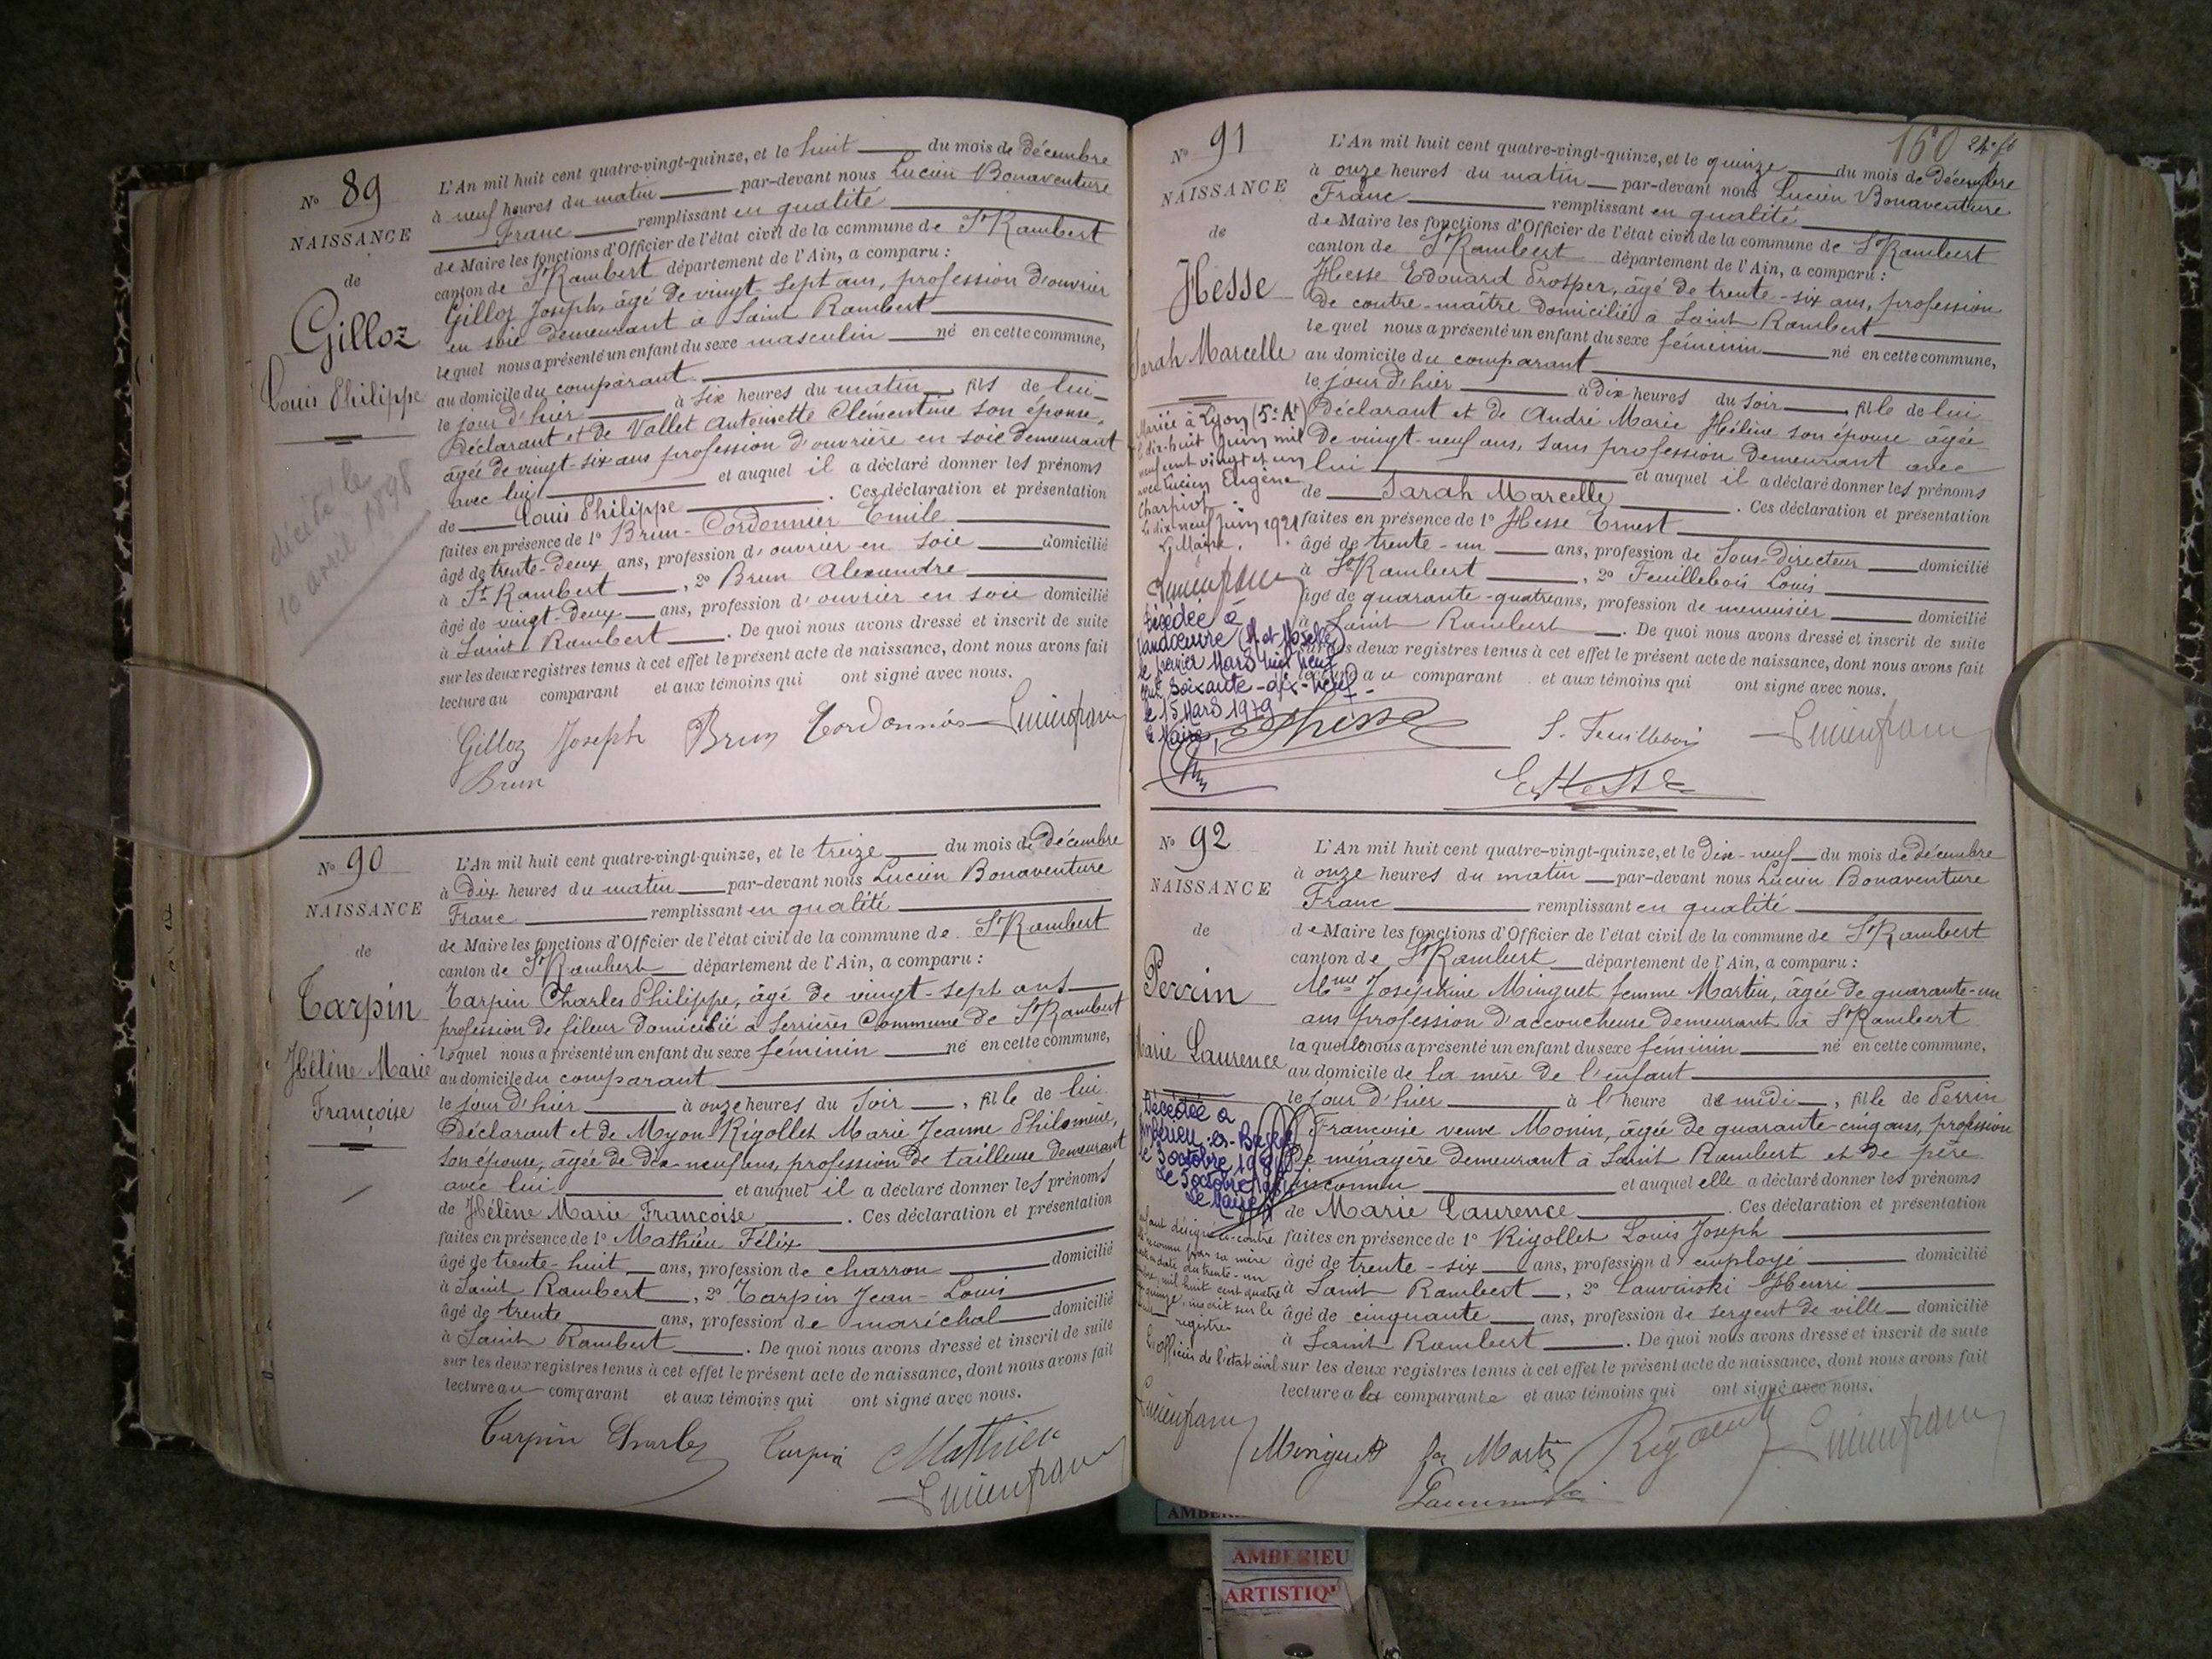 N° 89
NAISSANCE
de
Gilloz
Louis Philippe
décédé le
10 avril 1898
L'An mil huit cent quatre-vingt-quinze, et le huit du mois de décembre
à neuf heures du matin par-devant nous Lucien Bonaventure
Franc remplissant en qualité
de Maire les fonctions d'Officier de l'état civil de la commune de St Rambert
canton de St Rambert département de l'Ain, a comparu :
Gilloz Joseph, âgé de vingt-sept ans, profession d'ouvrier
en soie demeurant à Saint Rambert
lequel nous a présenté un enfant du sexe masculin né en cette commune,
au domicile du comparant
le jour d'hier à six heures du matin, fils de lui
Déclarant et de Vallet Antoinette Clémentine son épouse,
âgée de vingt-six ans profession d'ouvrière en soie demeurant
avec lui et auquel il a déclaré donner les prénoms
de Louis Philippe. Ces déclaration et présentation
faites en présence de 1° Brun-Cordonnier Emile
âgé de trente-deux ans, profession d'ouvrier en soie domicilié
à St Rambert, 2° Brun Alexandre
âgé de vingt-deux ans, profession d'ouvrier en soie domicilié
à Saint Rambert. De quoi nous avons dressé et inscrit de suite
sur les deux registres tenus à cet effet le présent acte de naissance, dont nous avons fait
lecture au comparant et aux témoins qui ont signé avec nous.
Gilloz Joseph Brun Cordonnier Lucien franc
Brun
N° 90
NAISSANCE
de
Tarpin
Hélène Marie
Françoise
L'An mil huit cent quatre-vingt-quinze, et le treize du mois de Décembre
à Dix heures du matin par-devant nous Lucien Bonaventure
Franc remplissant en qualité
de Maire les fonctions d'Officier de l'état civil de la commune de St Rambert
canton de St Rambert département de l'Ain, a comparu :
Tarpin Charles Philippe, âgé de vingt-sept ans
profession de fileur domicilié à Serrières Commune de St Rambert
lequel nous a présenté un enfant du sexe féminin né en cette commune,
au domicile du comparant
le jour d'hier à onze heures du soir, fille de lui
Déclarant et de Myon-Rigollet Marie Jeanne Philomène,
son épouse, âgée de dix neuf ans, profession de tailleuse demeurant
avec lui et auquel il a déclaré donner les prénoms
de Hélène Marie Françoise. Ces déclaration et présentation
faites en présence de 1° Mathieu Félix
âgé de trente-huit ans, profession de charron domicilié
à Saint Rambert, 2° Tarpin Jean-Louis
âgé de trente ans, profession de maréchal domicilié
à Saint Rambert. De quoi nous avons dressé et inscrit de suite
sur les deux registres tenus à cet effet le présent acte de naissance, dont nous avons fait
lecture au comparant et aux témoins qui ont signé avec nous.
Tarpin Charles Tarpin Mathieu
Lucien franc
160
N° 91
NAISSANCE
de
Hesse
Sarah Marcelle
Mariée à Lyon (5e At)
le dix-huit juin mil
neuf cent vingt et un
avec Lucien Eugène
Charpiot
Le dix-neuf juin 1921
Le Maire,
Lucien franc
Décédée à
Vandoeuvre (M et Moselle)
le premier Mars mil neuf
cent soixante-dix-neuf
le 15 Mars 1979
le Maire,
L'An mil huit cent quatre-vingt-quinze, et le quinze du mois de Décembre
à onze heures du matin par-devant nous Lucien Bonaventure
Franc remplissant en qualité
de Maire les fonctions d'Officier de l'état civil de la commune de St Rambert
canton de St Rambert département de l'Ain, a comparu :
Hesse Edouard Prosper, âgé de trente-six ans, profession
de contre-maître domicilié à Saint Rambert
lequel nous a présenté un enfant du sexe féminin né en cette commune,
au domicile du comparant
le jour d'hier à dix heures du soir, fille de lui
Déclarant et de André Marie Hélène son épouse âgée
de vingt-neuf ans, sans profession demeurant avec
lui et auquel il a déclaré donner les prénoms
de Sarah Marcelle. Ces déclaration et présentation
faites en présence de 1° Hesse Ernest
âgé de trente-un ans, profession de Sous-Directeur domicilié
à St Rambert, 2° Feuillebois Louis
âgé de quarante-quatre ans, profession de menuisier domicilié
à Saint Rambert. De quoi nous avons dressé et inscrit de suite
sur les deux registres tenus à cet effet le présent acte de naissance, dont nous avons fait
lecture au comparant et aux témoins qui ont signé avec nous.
Hesse L. Feuillebois Lucien franc
E. Hesse
N° 92
NAISSANCE
de
Perrin
Marie Laurence
Décédée à
Ambérieu-en-Bugey
le 3 octobre
Le 5 octobre
Le Maire
enfant désigné ci-contre
reconnu par sa mère
date du trente-un
mil huit cent quatre
quinze, inscrit sur le
registre
L'officier de l'état civil
Lucien franc
L'An mil huit cent quatre-vingt-quinze, et le Dix-neuf du mois de décembre
à onze heures du matin par-devant nous Lucien Bonaventure
Franc remplissant en qualité
de Maire les fonctions d'Officier de l'état civil de la commune de St Rambert
canton de St Rambert département de l'Ain, a comparu :
Mme Joséphine Minguet femme Martin, âgée de quarante-un
ans profession d'accoucheuse demeurant à St Rambert
laquelle nous a présenté un enfant du sexe féminin né en cette commune,
au domicile de la mère de l'enfant
le jour d'hier à l'heure de midi, fille de Perrin
Françoise veuve Monin, âgée de quarante-cinq ans, profession
de ménagère demeurant à Saint Rambert et de père
inconnu et auquel elle a déclaré donner les prénoms
de Marie Laurence. Ces déclaration et présentation
faites en présence de 1° Rigollet Louis Joseph
âgé de trente-six ans, profession d'employé domicilié
à Saint Rambert, 2° Lauvinski Henri
âgé de cinquante ans, profession de sergent de ville domicilié
à Saint Rambert. De quoi nous avons dressé et inscrit de suite
sur les deux registres tenus à cet effet le présent acte de naissance, dont nous avons fait
lecture à la comparante et aux témoins qui ont signé avec nous.
Minguet Martin Rigollet Lucien franc
AMBERIEU
ARTISTIQ